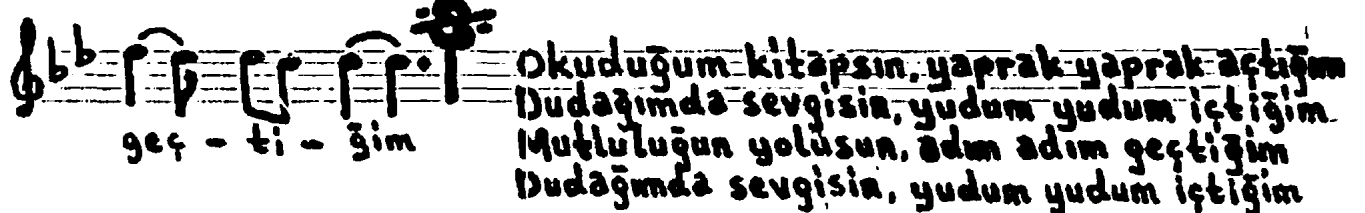 geç - ti - ğim
Okuduğum kitapsın, yaprak yaprak açtığım
Dudağımda sevgisin, yudum yudum içtiğim
Mutluluğun yolusun, adım adım geçtiğim
Dudağımda sevgisin, yudum yudum içtiğim